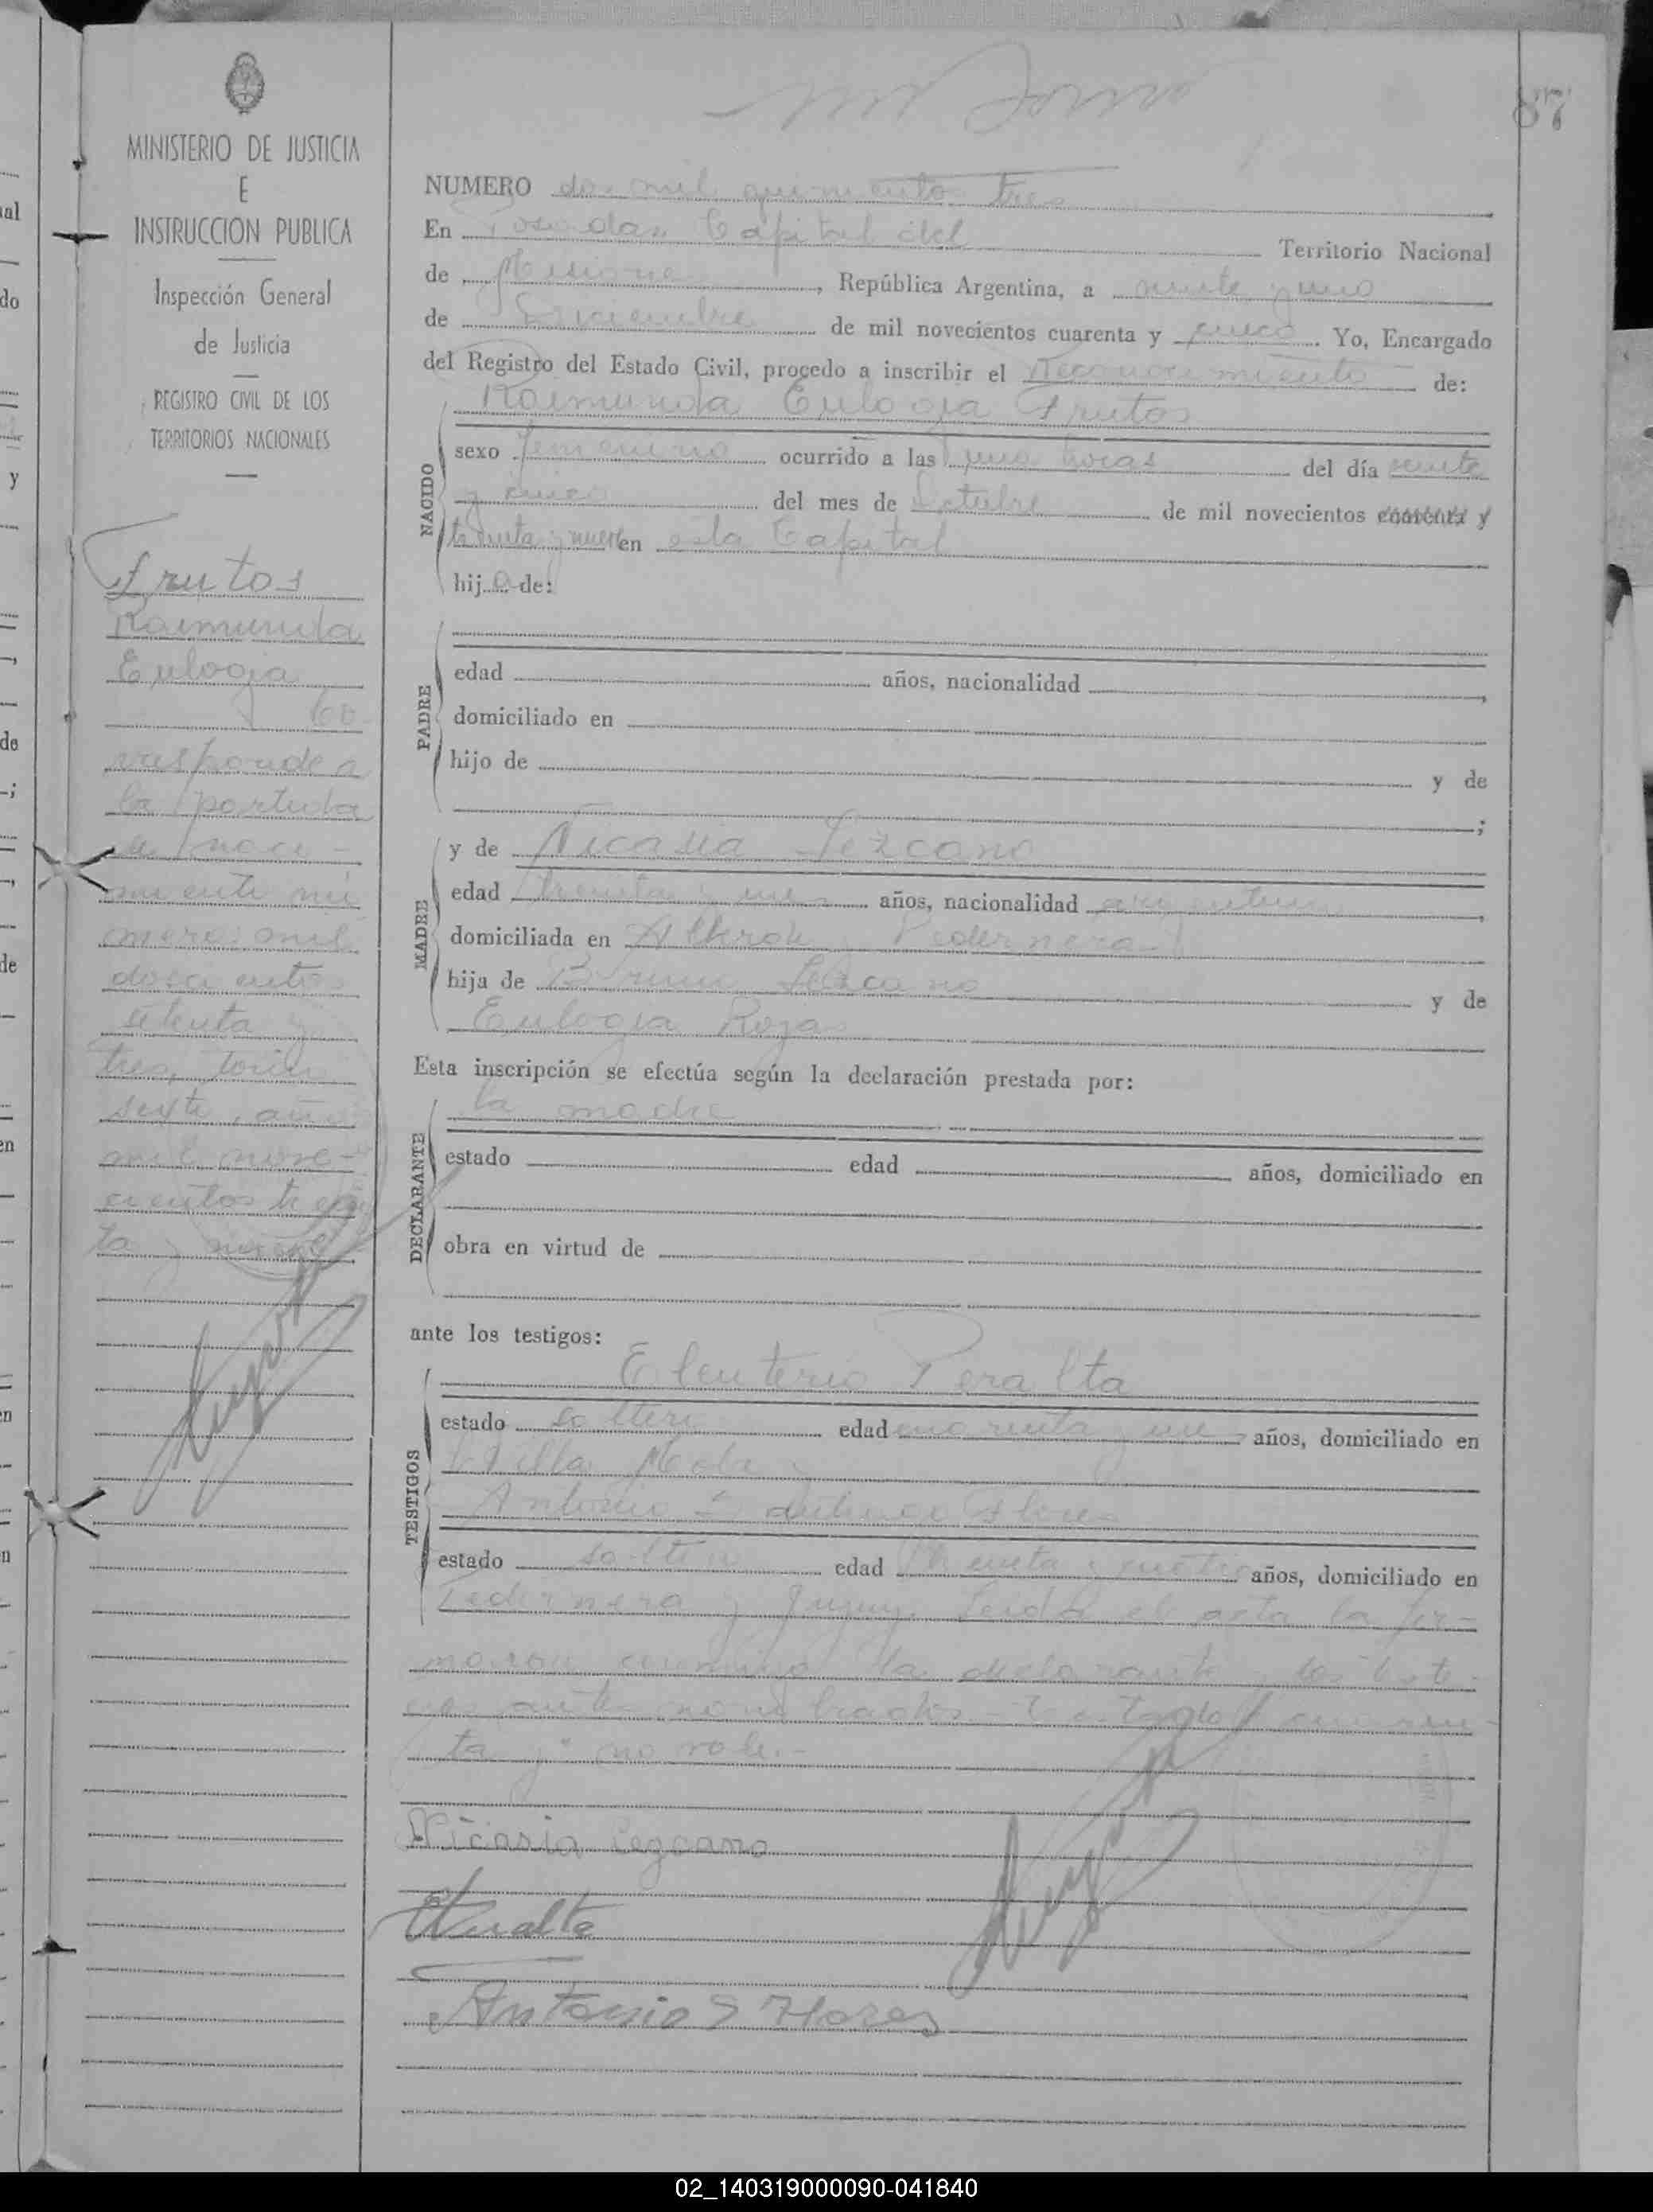 87
MINISTERIO DE JUSTICIA
E
INSTRUCCION PUBLICA
Inspección General
de Justicia
REGISTRO CIVIL DE LOS
TERRITORIOS NACIONALES
Frutos
Raimunda
Eulogia
Co
rresponde a
la partida
de naci-
miento nú
mero mil
doscientos
setenta y
tres, tomo
sexto, año
mil nove-
cientos trein
ta y nueve
NUMERO dos mil quinientos tres
En Posadas Capital del Territorio Nacional
de Misiones, República Argentina, a veinte y uno
de Diciembre de mil novecientos cuarenta y cinco. Yo, Encargado
del Registro del Estado Civil, procedo a inscribir el Reconocimiento de:
Raimunda Eulogia Frutos
NACIDO
sexo femenino ocurrido a las una horas del día veinte
y cinco del mes de Octubre de mil novecientos cuarenta y
treinta y nueve en esta Capital
hija de:
PADRE
edad años, nacionalidad ,
domiciliado en
hijo de y de
;
MADRE
y de Nicasia Lezcano
edad treinta y años, nacionalidad argentina,
domiciliada en Pedernera
hija de Bruno Lezcano y de
Eulogia Rojas
Esta inscripción se efectúa según la declaración prestada por:
DECLARANTE
la madre
estado edad años, domiciliado en
obra en virtud de
ante los testigos:
TESTIGOS
Eleuterio Peralta
estado soltero edad cuarenta y años, domiciliado en
Villa
Antonio Flores
estado soltero edad treinta y cuatro años, domiciliado en
Pedernera y Jujuy. Leída el acta la fir-
maron conmigo la declarante y los testi-
gos ante nombrados - Testado cuaren-
ta y" no vale.-
Nicasia Lezcano
Peralta
Antonio S Flores
02_140319000090-041840